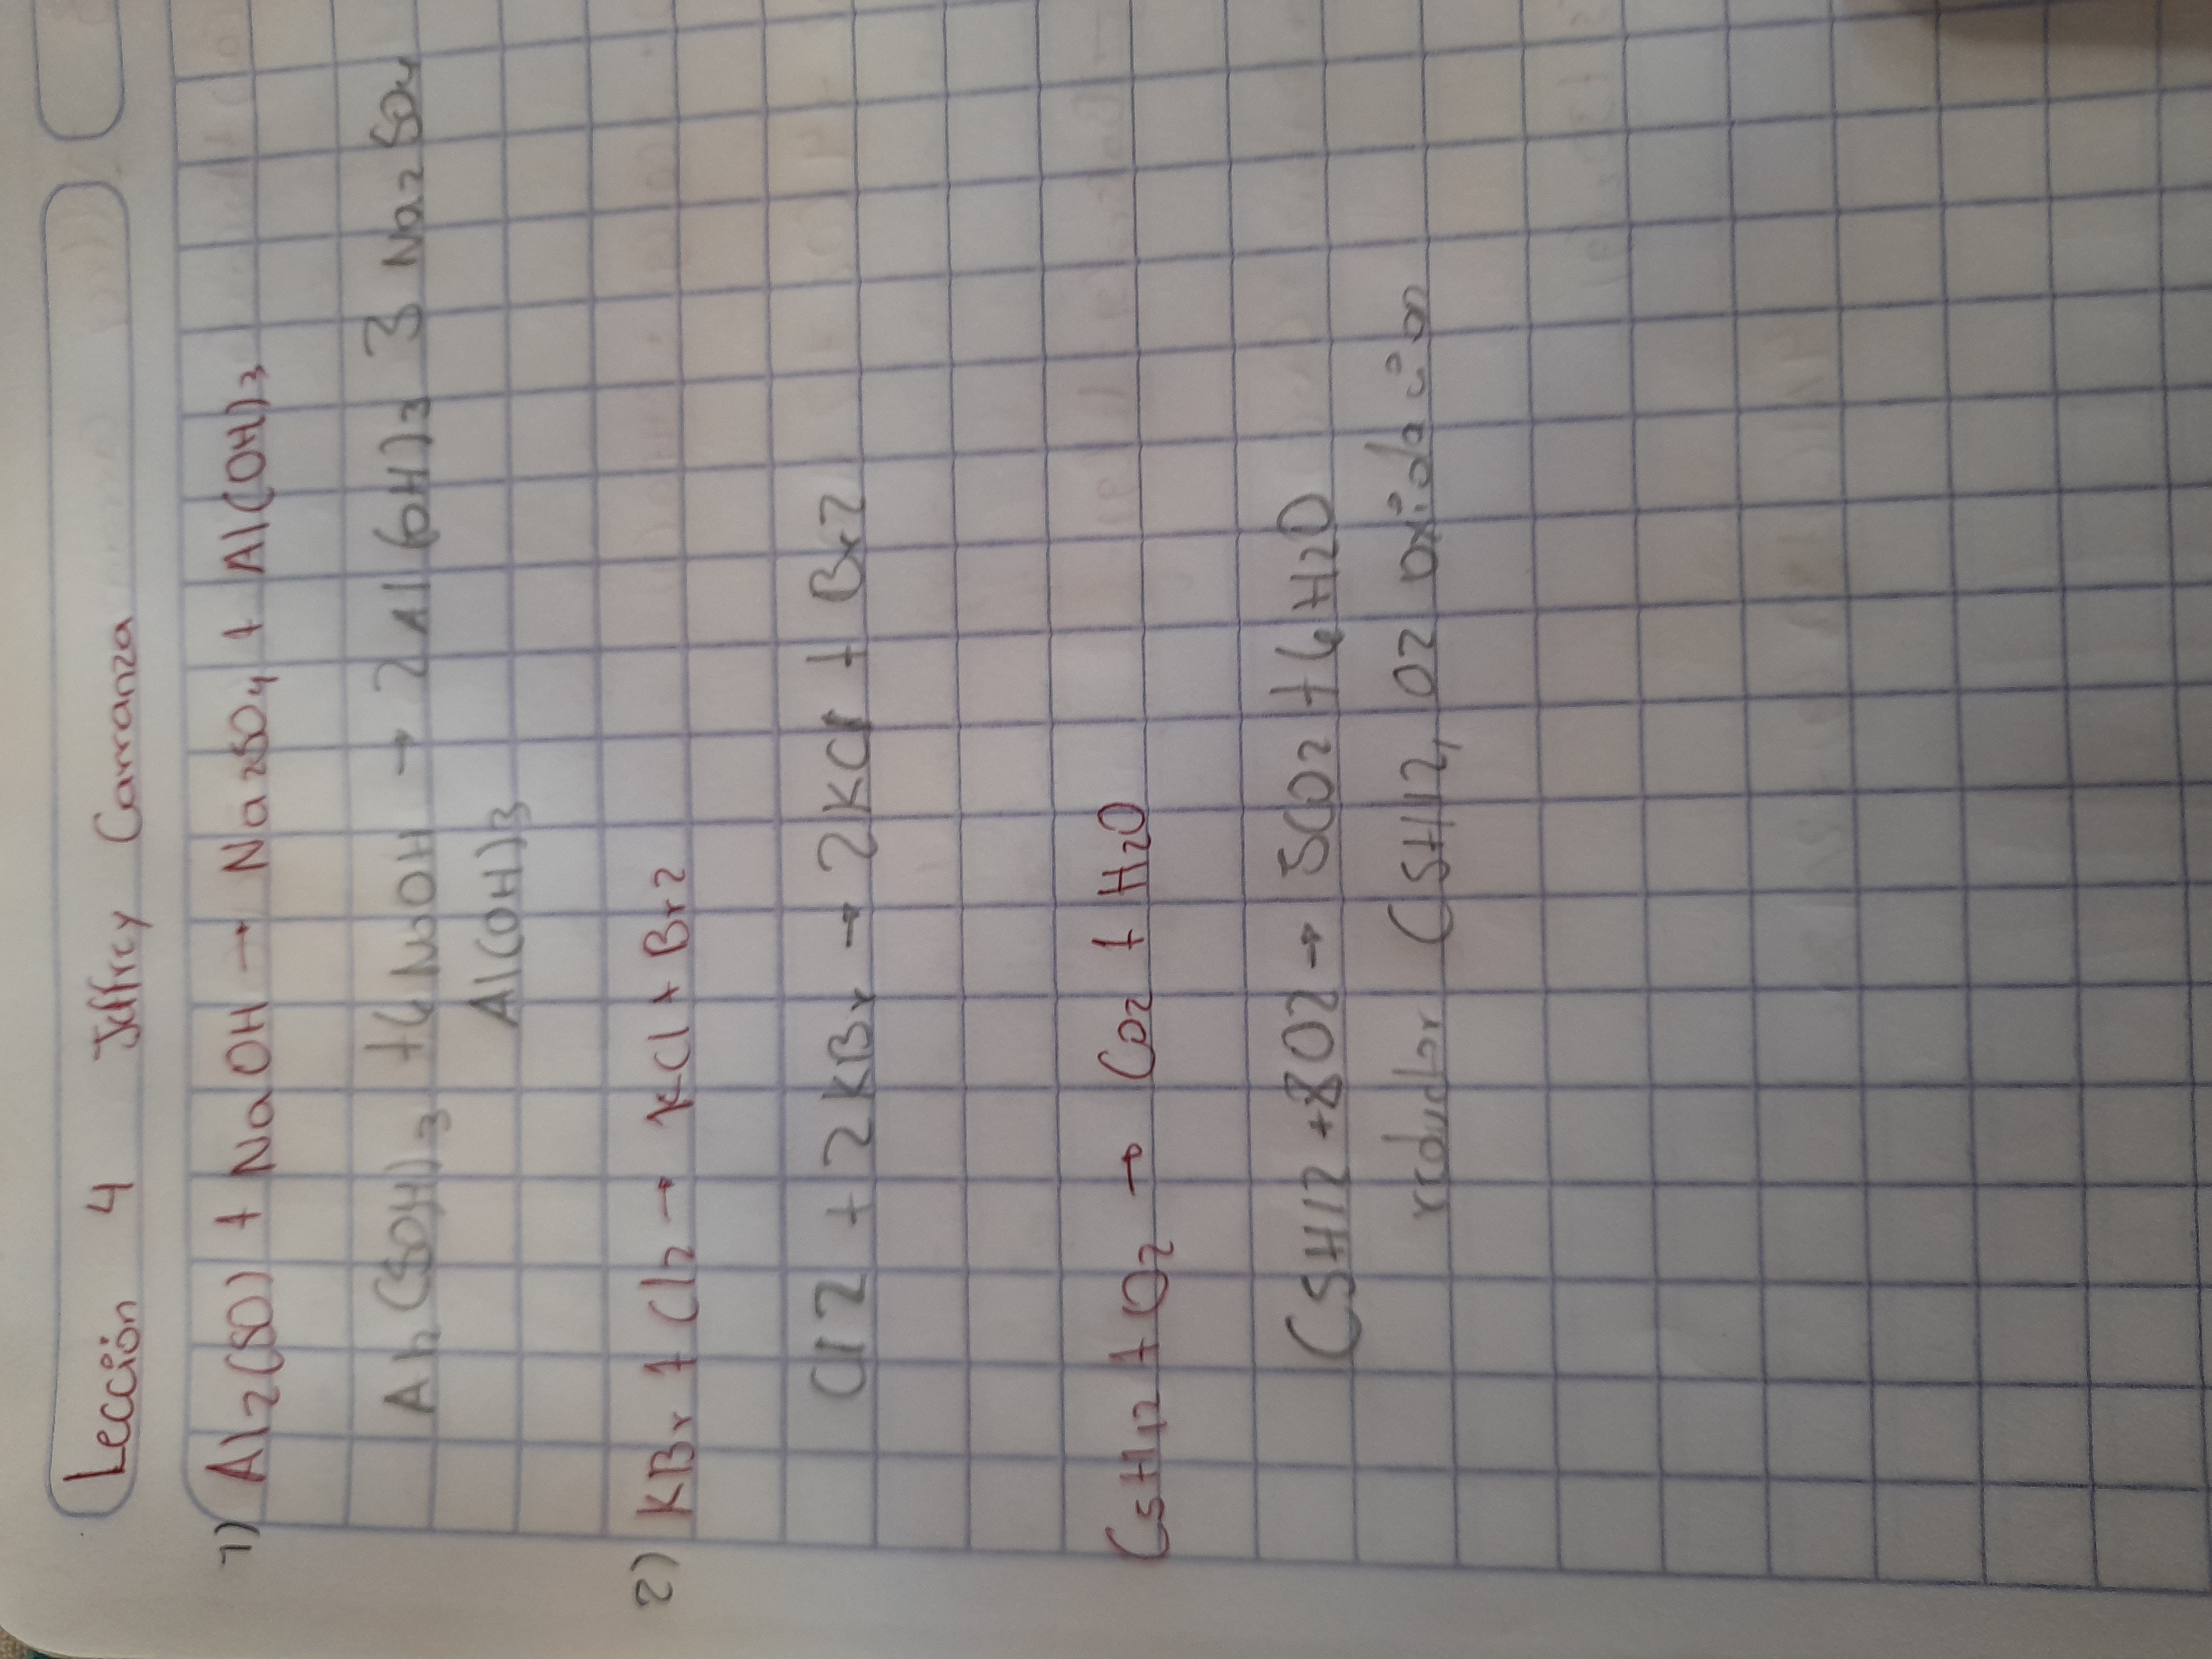 Lección 4 Jeffrey Carranza
1) Al2(SO) + NaOH → Na2SO4 + Al(OH)3
Al2(SO4)3 + 6 NaOH → 2 Al(OH)3 3 Na2SO4
Al(OH)3
2) KBr + Cl2 → KCl + Br2
Cl2 + 2KBr → 2KCl + Br2
C5H12 + O2 → CO2 + H2O
C5H12 + 8O2 → 5CO2 + 6H2O
reductor C5H12, O2 oxidación